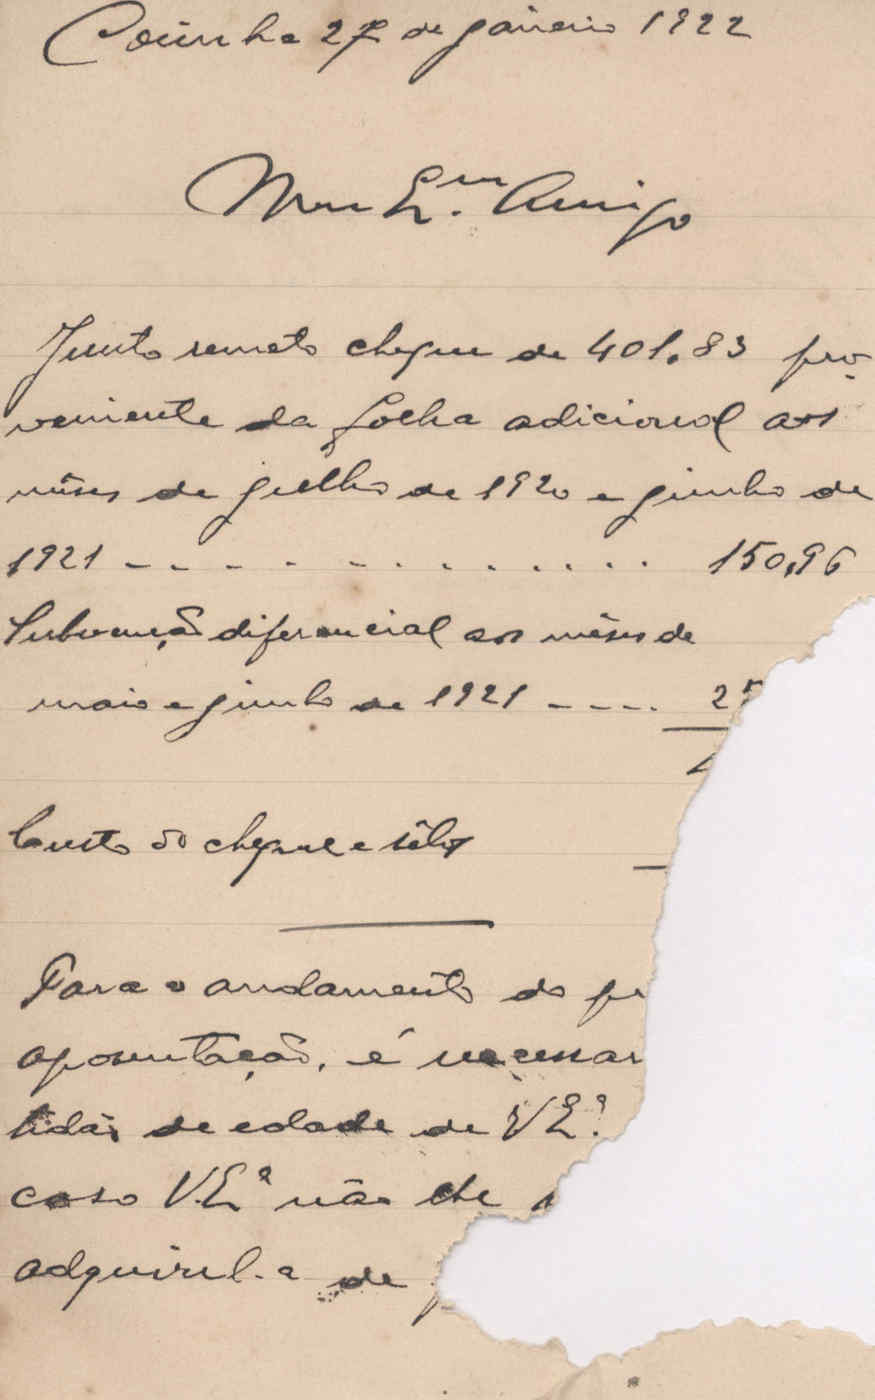 27 de janeiro 1922
Meu Ex.mo Amigo
Junto remeto cheque de 401.83 pro-
veniente da folha adicional aos
mêses de julho de 1920 e junho de
1921 - - - - - - - - - - - - - 150,96
Subvenção diferencial aos mêses de
maio e junho de 1921 - - - - 25
Custo do cheque e sêlos
Para o andamento do
aposentação, é
tidão de edade de V.Ex.ª
caso V.Ex.ª não
adquiril-a de